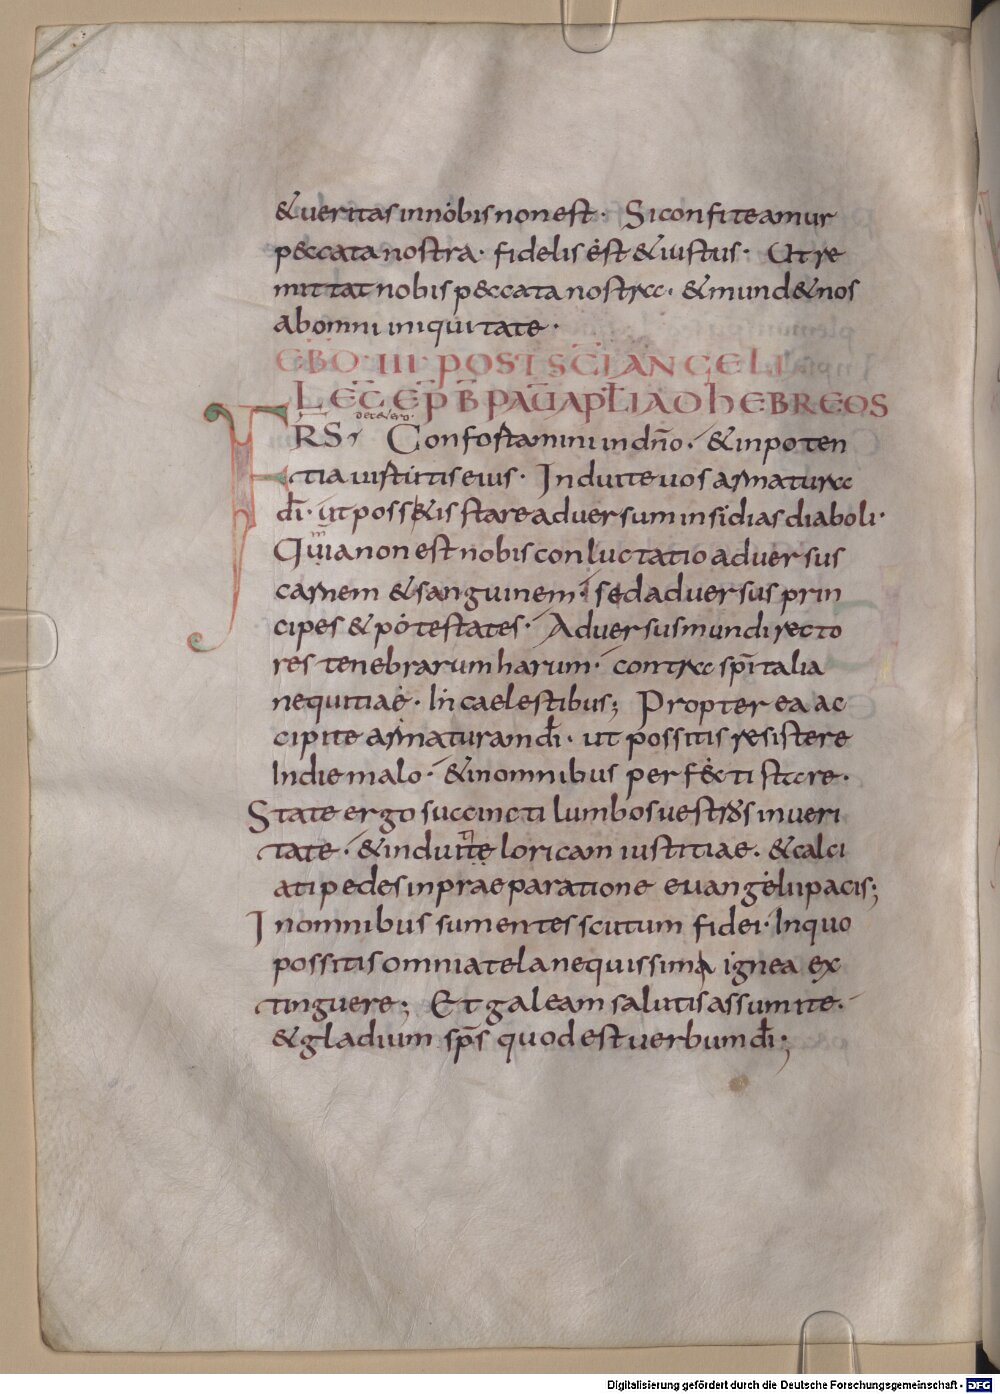 & ueritas in nobis non est· Si confiteamur
peccata nostra· fidelis est & iustus· Ut re
mittat nobis peccata nostra· & mund& nos
ab omni iniquitate·
EBD·III·POST SCI ANGELI
LEC EPB PAU APLI AD HEBREOS
de cetero·
FRS Confostamini in dno·& in poten
tia uistutis eius· Induite uos armatura
di· ut poss&is stare aduersum insidias diaboli·
Quia non est nobis conluctatio aduersus
carnem & sanguinem· sed aduersus prin
cipes & potestates· Aduersus mundi recto
res tenebrarum harum· contra spitalia
nequitiae· In caelestibus; Propterea ac
cipite armaturam di· ut possitis resistere
In die malo·& in omnibus perfecti stare·
State ergo succincti lumbos uestros in ueri
tate·& induite loricam iustitiae·& calci
ati pedes in praeparatione euangelii pacis;
In omnibus sumentes scutum fidei· In quo
possitis omnia tela nequissima ignea ex
tinguere; Et galeam salutis assumite·
& gladium sps quod est uerbum di·;
Digitalisierung gefördert durch die Deutsche Forschungsgemeinschaft - DFG